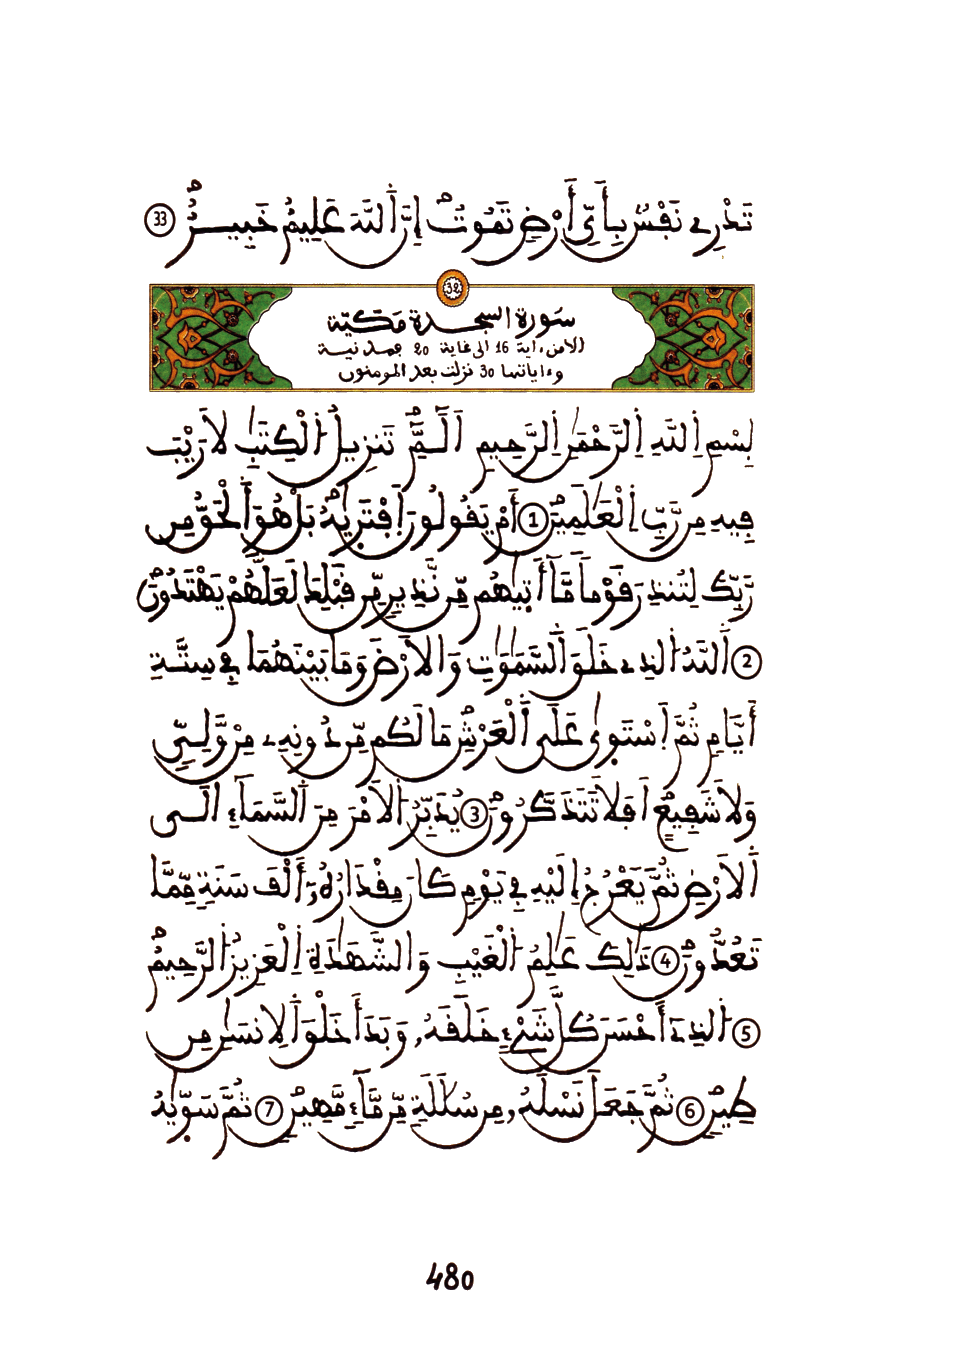 تَدْرِے نَفْسٌ بِأَيِّ أَرْضٍ تَمُوتُ إِنَّ اَ۬للَّهَ عَلِيمٌ خَبِيرٌ 33
32
سُورة السجدة مَكيّة
الا من ءاية 16 الى غاية 20 فمدنية
وءاياتها 30 نزلت بعد المومنون
بِسْمِ اِ۬للَّهِ اِ۬لرَّحْمَٰنِ اِ۬لرَّحِيمِ أَلَٓمِّٓ تَنزِيلُ اُ۬لْكِتَٰبِ لَا رَيْبَ
فِيهِ مِن رَّبِّ اِ۬لْعَٰلَمِينَ 1 أَمْ يَقُولُونَ اَ۪فْتَر۪يٰهُ بَلْ هُوَ اَ۬لْحَقُّ مِن
رَّبِّكَ لِتُنذِرَ قَوْماٗ مَّآ أَت۪يٰهُم مِّن نَّذِيرٖ مِّن قَبْلِكَ لَعَلَّهُمْ يَهْتَدُونَ
2 اَ۬للَّهُ اُ۬لذِے خَلَقَ اَ۬لسَّمَٰوَٰتِ وَالَارْضَ وَمَا بَيْنَهُمَا فِے سِتَّةِ
أَيَّامٖ ثُمَّ اَ۪سْتَو۪يٰ عَلَى اَ۬لْعَرْشِ مَا لَكُم مِّن دُونِهِۦ مِنْ وَّلِيّٖ
وَلَا شَفِيعٍ اَفَلَا تَتَذَكَّرُونَ 3 يُدَبِّرُ اُ۬لَامْرَ مِنَ اَ۬لسَّمَآءِ اِلَى
اَ۬لَارْضِ ثُمَّ يَعْرُجُ إِلَيْهِ فِے يَوْمٖ كَانَ مِقْدَارُهُۥٓ أَلْفَ سَنَةٖ مِّمَّا
تَعُدُّونَ 4 ذَٰلِكَ عَٰلِمُ اُ۬لْغَيْبِ وَالشَّهَٰدَةِ اِ۬لْعَزِيزُ اُ۬لرَّحِيمُ
5 اُ۬لذِےٓ أَحْسَنَ كُلَّ شَےْءٍ خَلَقَهُۥ وَبَدَأَ خَلْقَ اَ۬لِانسَٰنِ مِن
طِينٖ 6 ثُمَّ جَعَلَ نَسْلَهُۥ مِن سُلَٰلَةٖ مِّن مَّآءٖ مَّهِينٖ 7 ثُمَّ سَوّ۪يٰهُ
480